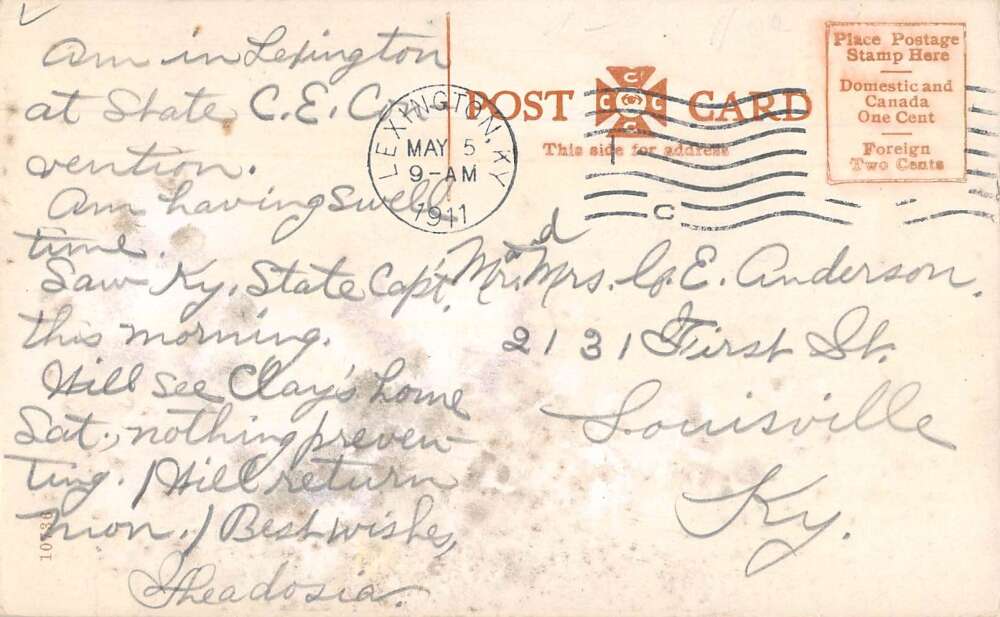 Am in Lexington
at State C. E. Con-
vention.
Am having swell
time.
Saw Ky. State Capt.
this morning.
Will see Clay's home
Sat., nothing preven-
ting. Will return
mon. Best wishes,
Theadosia.
10736
POST CARD
This side for address
C C C C
LEXINGTON, KY
MAY 5
9-AM
1911
C
Place Postage
Stamp Here
Domestic and
Canada
One Cent
Foreign
Two Cents
Mr. and Mrs. G. E. Anderson,
2131 First St.
Louisville
Ky.